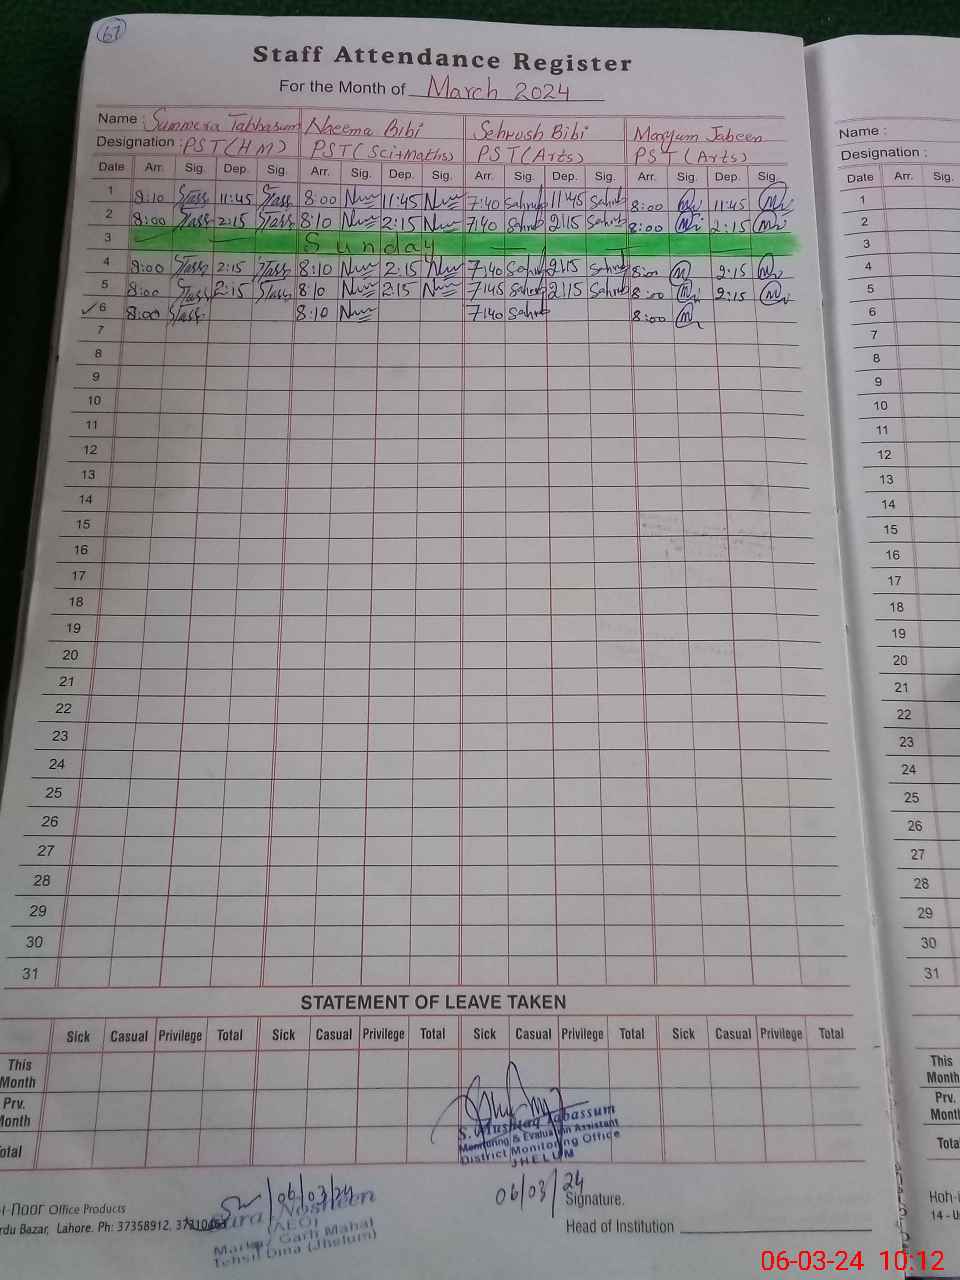 67
Staff Attendance Register
For the Month of March 2024
Name : Summera Tabbasum Naeema Bibi Sehrush Bibi Maryum Jabeen
Designation : PST(HM) PST(Sci+Maths) PST(Arts) PST(Arts)
Date Arr. Sig. Dep. Sig. Arr. Sig. Dep. Sig. Arr. Sig. Dep. Sig. Arr. Sig. Dep. Sig.
1 8:10 11:45 8:00 11:45 7:40 Sahrub 11:45 Sahrub 8:00 11:45
2 8:00 2:15 8:10 2:15 7:40 Sahrub 2:15 Sahrub 8:00 2:15
3 Sunday
4 8:00 2:15 8:10 2:15 7:40 Sahrub 2:15 Sahrub 8:00 2:15
5 8:00 2:15 8:10 2:15 7:45 Sahrub 2:15 Sahrub 8:00 2:15
6 8:00 8:10 7:40 Sahrub 8:00
7
8
9
10
11
12
13
14
15
16
17
18
19
20
21
22
23
24
25
26
27
28
29
30
31
STATEMENT OF LEAVE TAKEN
Sick Casual Privilege Total Sick Casual Privilege Total Sick Casual Privilege Total Sick Casual Privilege Total
This
Month
Prv.
Month
Total
S. Mushtaq Tabassum
Monitoring & Evaluation Assistant
District Monitoring Office
JHELUM
06/03/24
06/03/24
Nosheen
(AEO)
Markaz Garh Mahal
Tehsil Dina (Jhelum)
Office Products
Urdu Bazar, Lahore. Ph: 37358912,
Signature.
Head of Institution
Name :
Designation :
Date Arr. Sig.
1
2
3
4
5
6
7
8
9
10
11
12
13
14
15
16
17
18
19
20
21
22
23
24
25
26
27
28
29
30
31
This
Month
Prv.
Month
Total
06-03-24 10:12